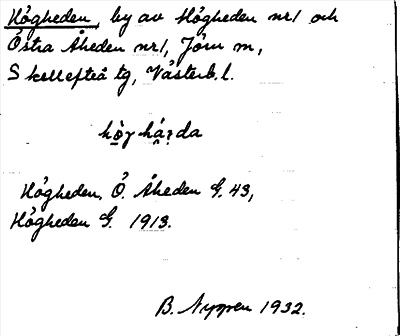 Högheden, by av Högheden nr 1 och
Östra Åheden nr 1, Jörn sn,
Skellefteå tg, Västerb. l.
Högheden, Ö. Åheden G. 43,
Högheden G. 1913.
B. Nyggren 1932.